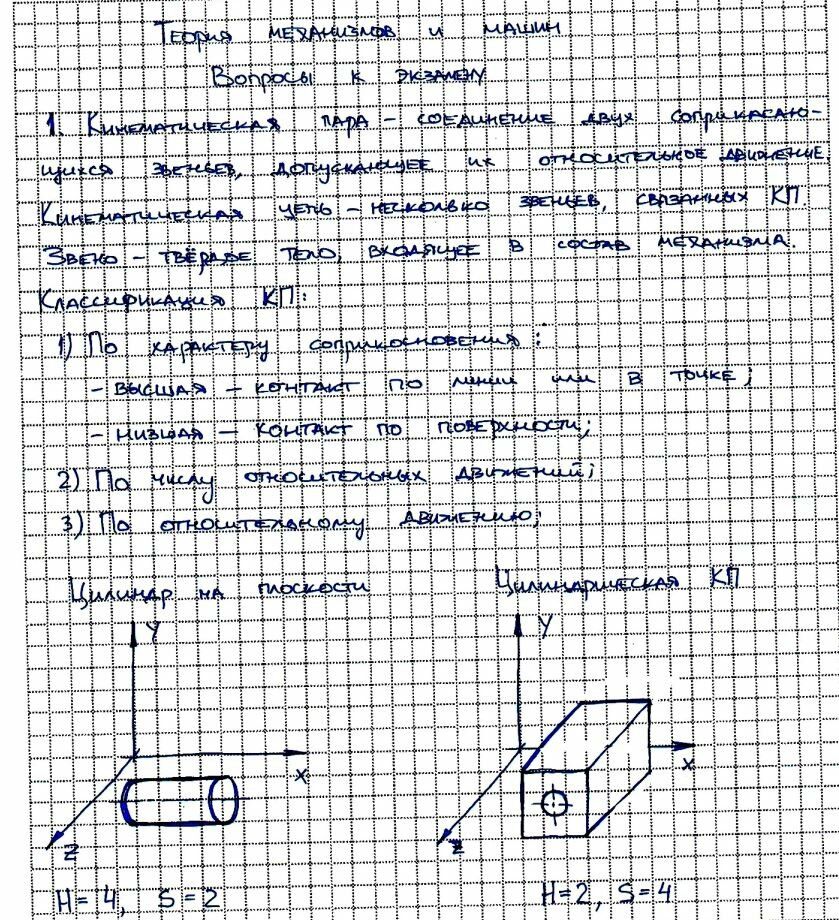 Теория механизмов и машин
Вопросы к экзамену
1. Кинематическая пара – соединение двух соприкасаю-
щихся звеньев, допускающее их относительное движение.
Кинематическая цепь – несколько звеньев, связанных КП.
Звено – твёрдое тело, входящее в состав механизма.
Классификация КП:
1) По характеру соприкосновения:
– высшая – контакт по линии или в точке;
– низшая – контакт по поверхности;
2) По числу относительных движений;
3) По относительному движению;
Цилиндр на плоскости
Цилиндрическая КП
Y
X
Z
Y
X
Z
H=4, S=2
H=2, S=4